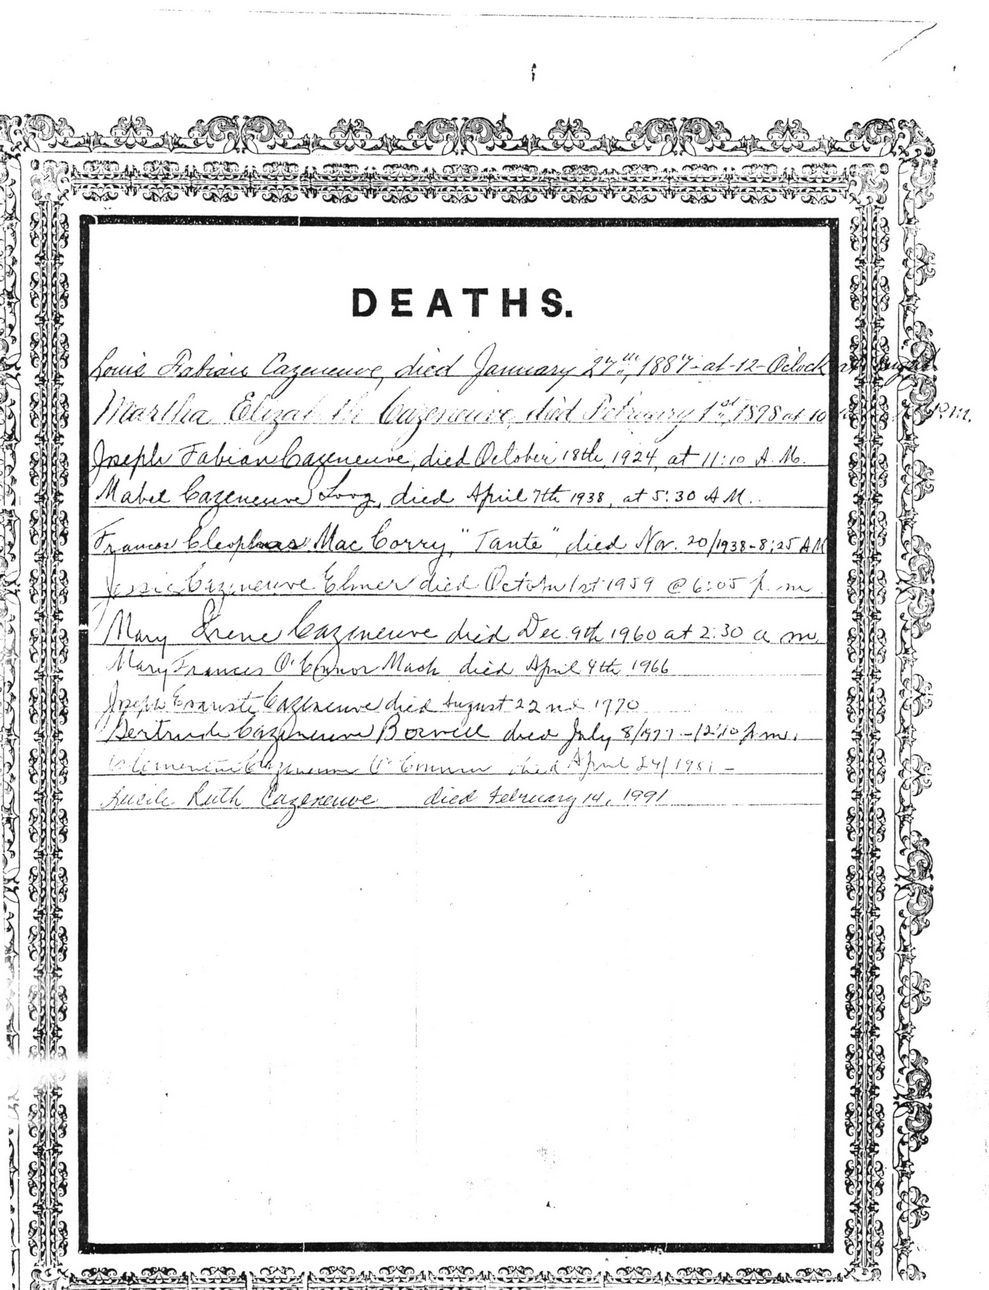 DEATHS.
Louis Fabian Cazeneuve, died January 27th, 1887 - at - 12 - Oclock at night
Martha Elizabeth Cazeneuve, died February 1st, 1898 at 10 P.M.
Joseph Fabian Cazeneuve, died October 18th, 1924, at 11:10 A.M.
Mabel Cazeneuve Long, died April 7th 1938, at 5:30 A.M.
Frances Cleophas Mac Corry, "Tante" died Nov. 20/1938 - 8:25 AM
Jessie Cazeneuve Elmer died October 1st 1959 @ 6:05 p.m.
Mary Irene Cazeneuve died Dec. 9th 1960 at 2:30 a m.
Mary Frances O'Connor Mach died April 4th 1966
Joseph Evariste Cazeneuve died August 22nd 1970
Gertrude Cazeneuve died July 8/1977 - 12:10 p.m.
Clementine Cazeneuve O'Connor died April 24/1981 -
Lucile Ruth Cazeneuve died February 14, 1991